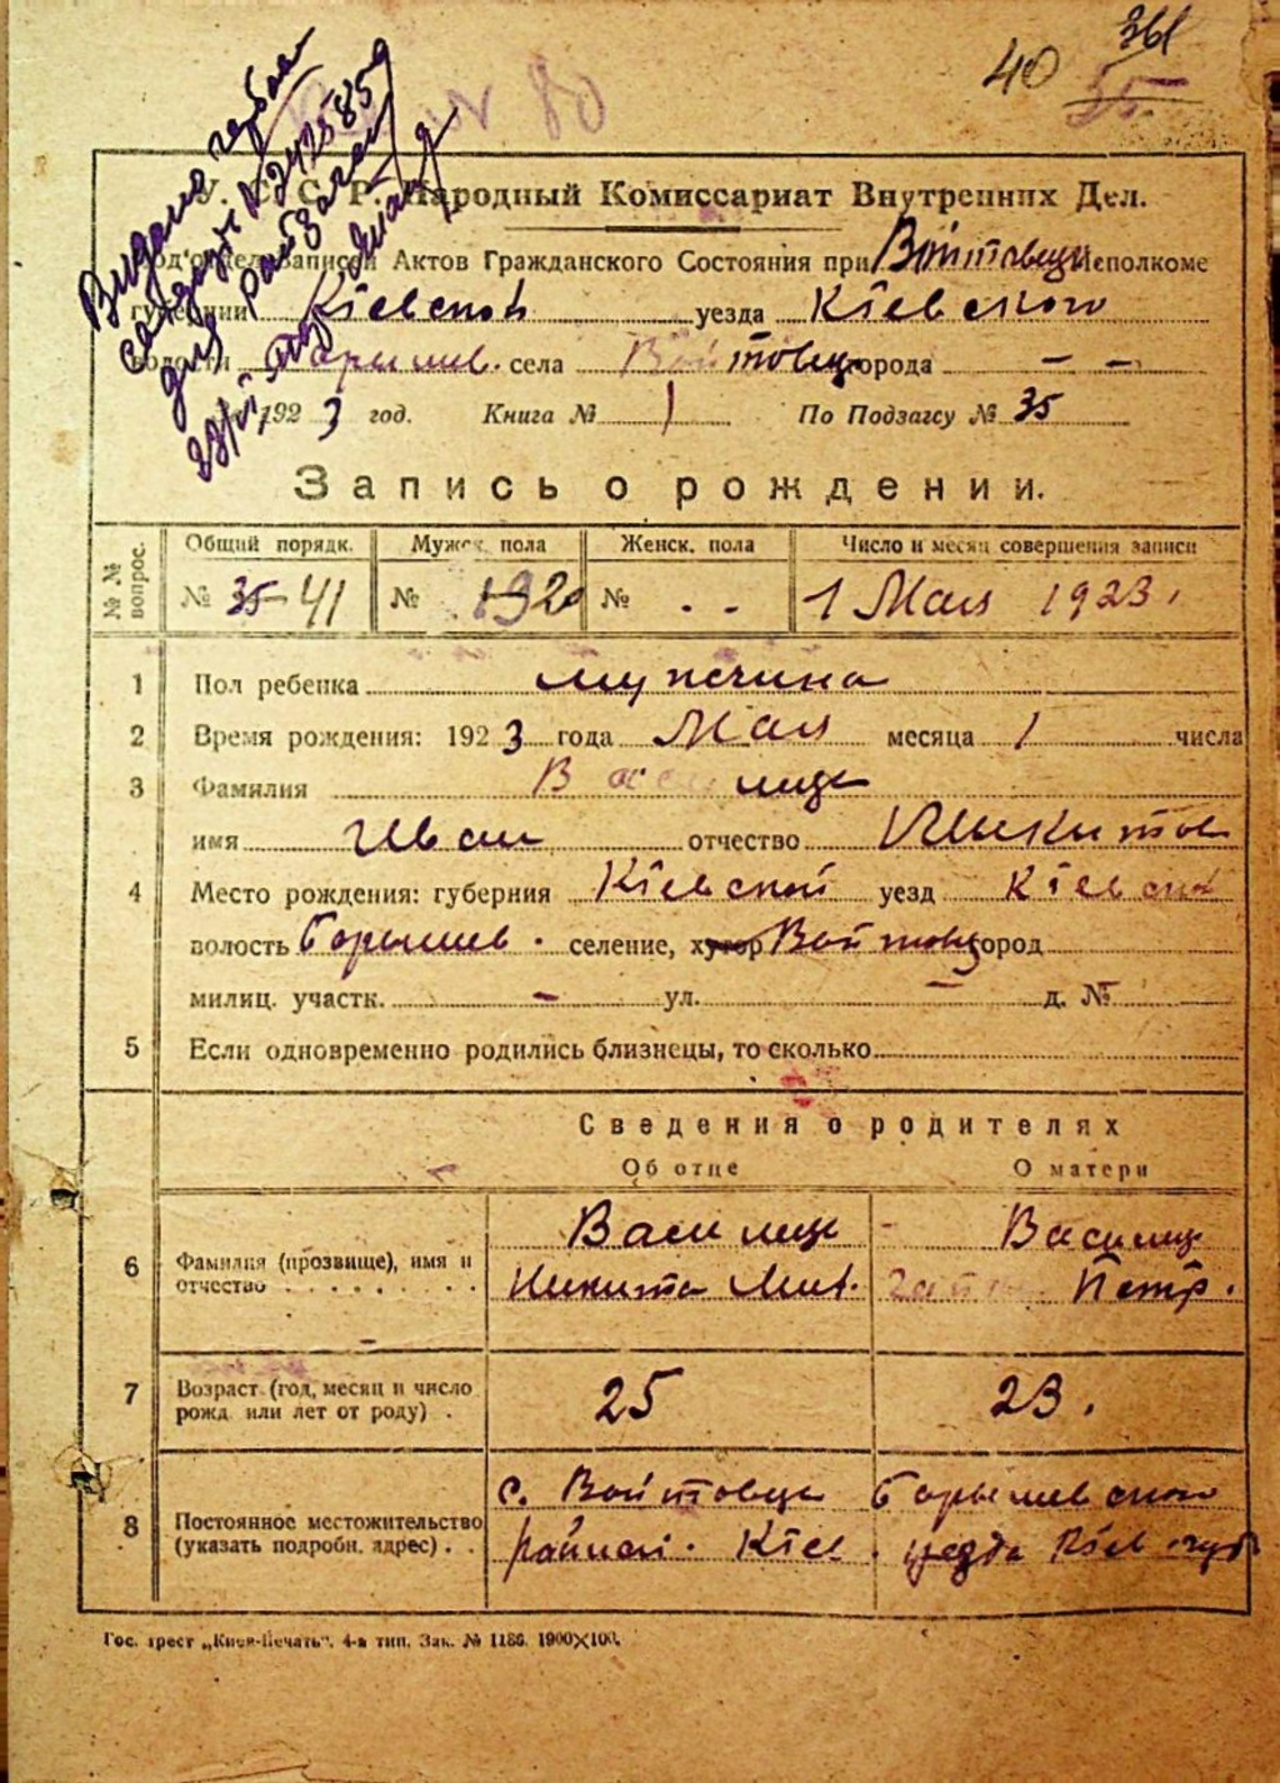 361
40 35
№ 80
Видано
№ 242585
для
У. С. С. Р. Народный Комиссариат Внутренних Дел.
Под'отдел Записей Актов Гражданского Состояния при Войтовец. Исполкоме
губернии Кіевской уезда Кіевского
волости Барышев. села Войтовцы города — —
1923 год. Книга № 1 По Подзагсу № 35
Запись о рождении.
№ № вопрос. Общий порядк. Мужск. пола Женск. пола Число и месяц совершения записи
№ 35 41 № № - - 1 Мая 1923.
1 Пол ребенка мужчина
2 Время рождения: 1923 года Мая месяца 1 числа
3 Фамилия
имя Иван отчество Никитов
4 Место рождения: губерния Кіевской уезд Кіевской
волость Барышев. селение, хутор Войтовцы город
милиц. участк. — ул. — д. №
5 Если одновременно родились близнецы, то сколько
Сведения о родителях
Об отце О матери
6 Фамилия (прозвище), имя и
отчество . . . . . . . .
Никита Петр.
7 Возраст (год, месяц и число
рожд. или лет от роду) . 25 23.
с. Войтовцы Барышевского
8 Постоянное местожительство
(указать подробн. адрес) . . района. Кіев. уезда Кіев. губ.
Гос. трест „Киев-Печать". 4-я тип. Зак. № 1186. 1900×100.